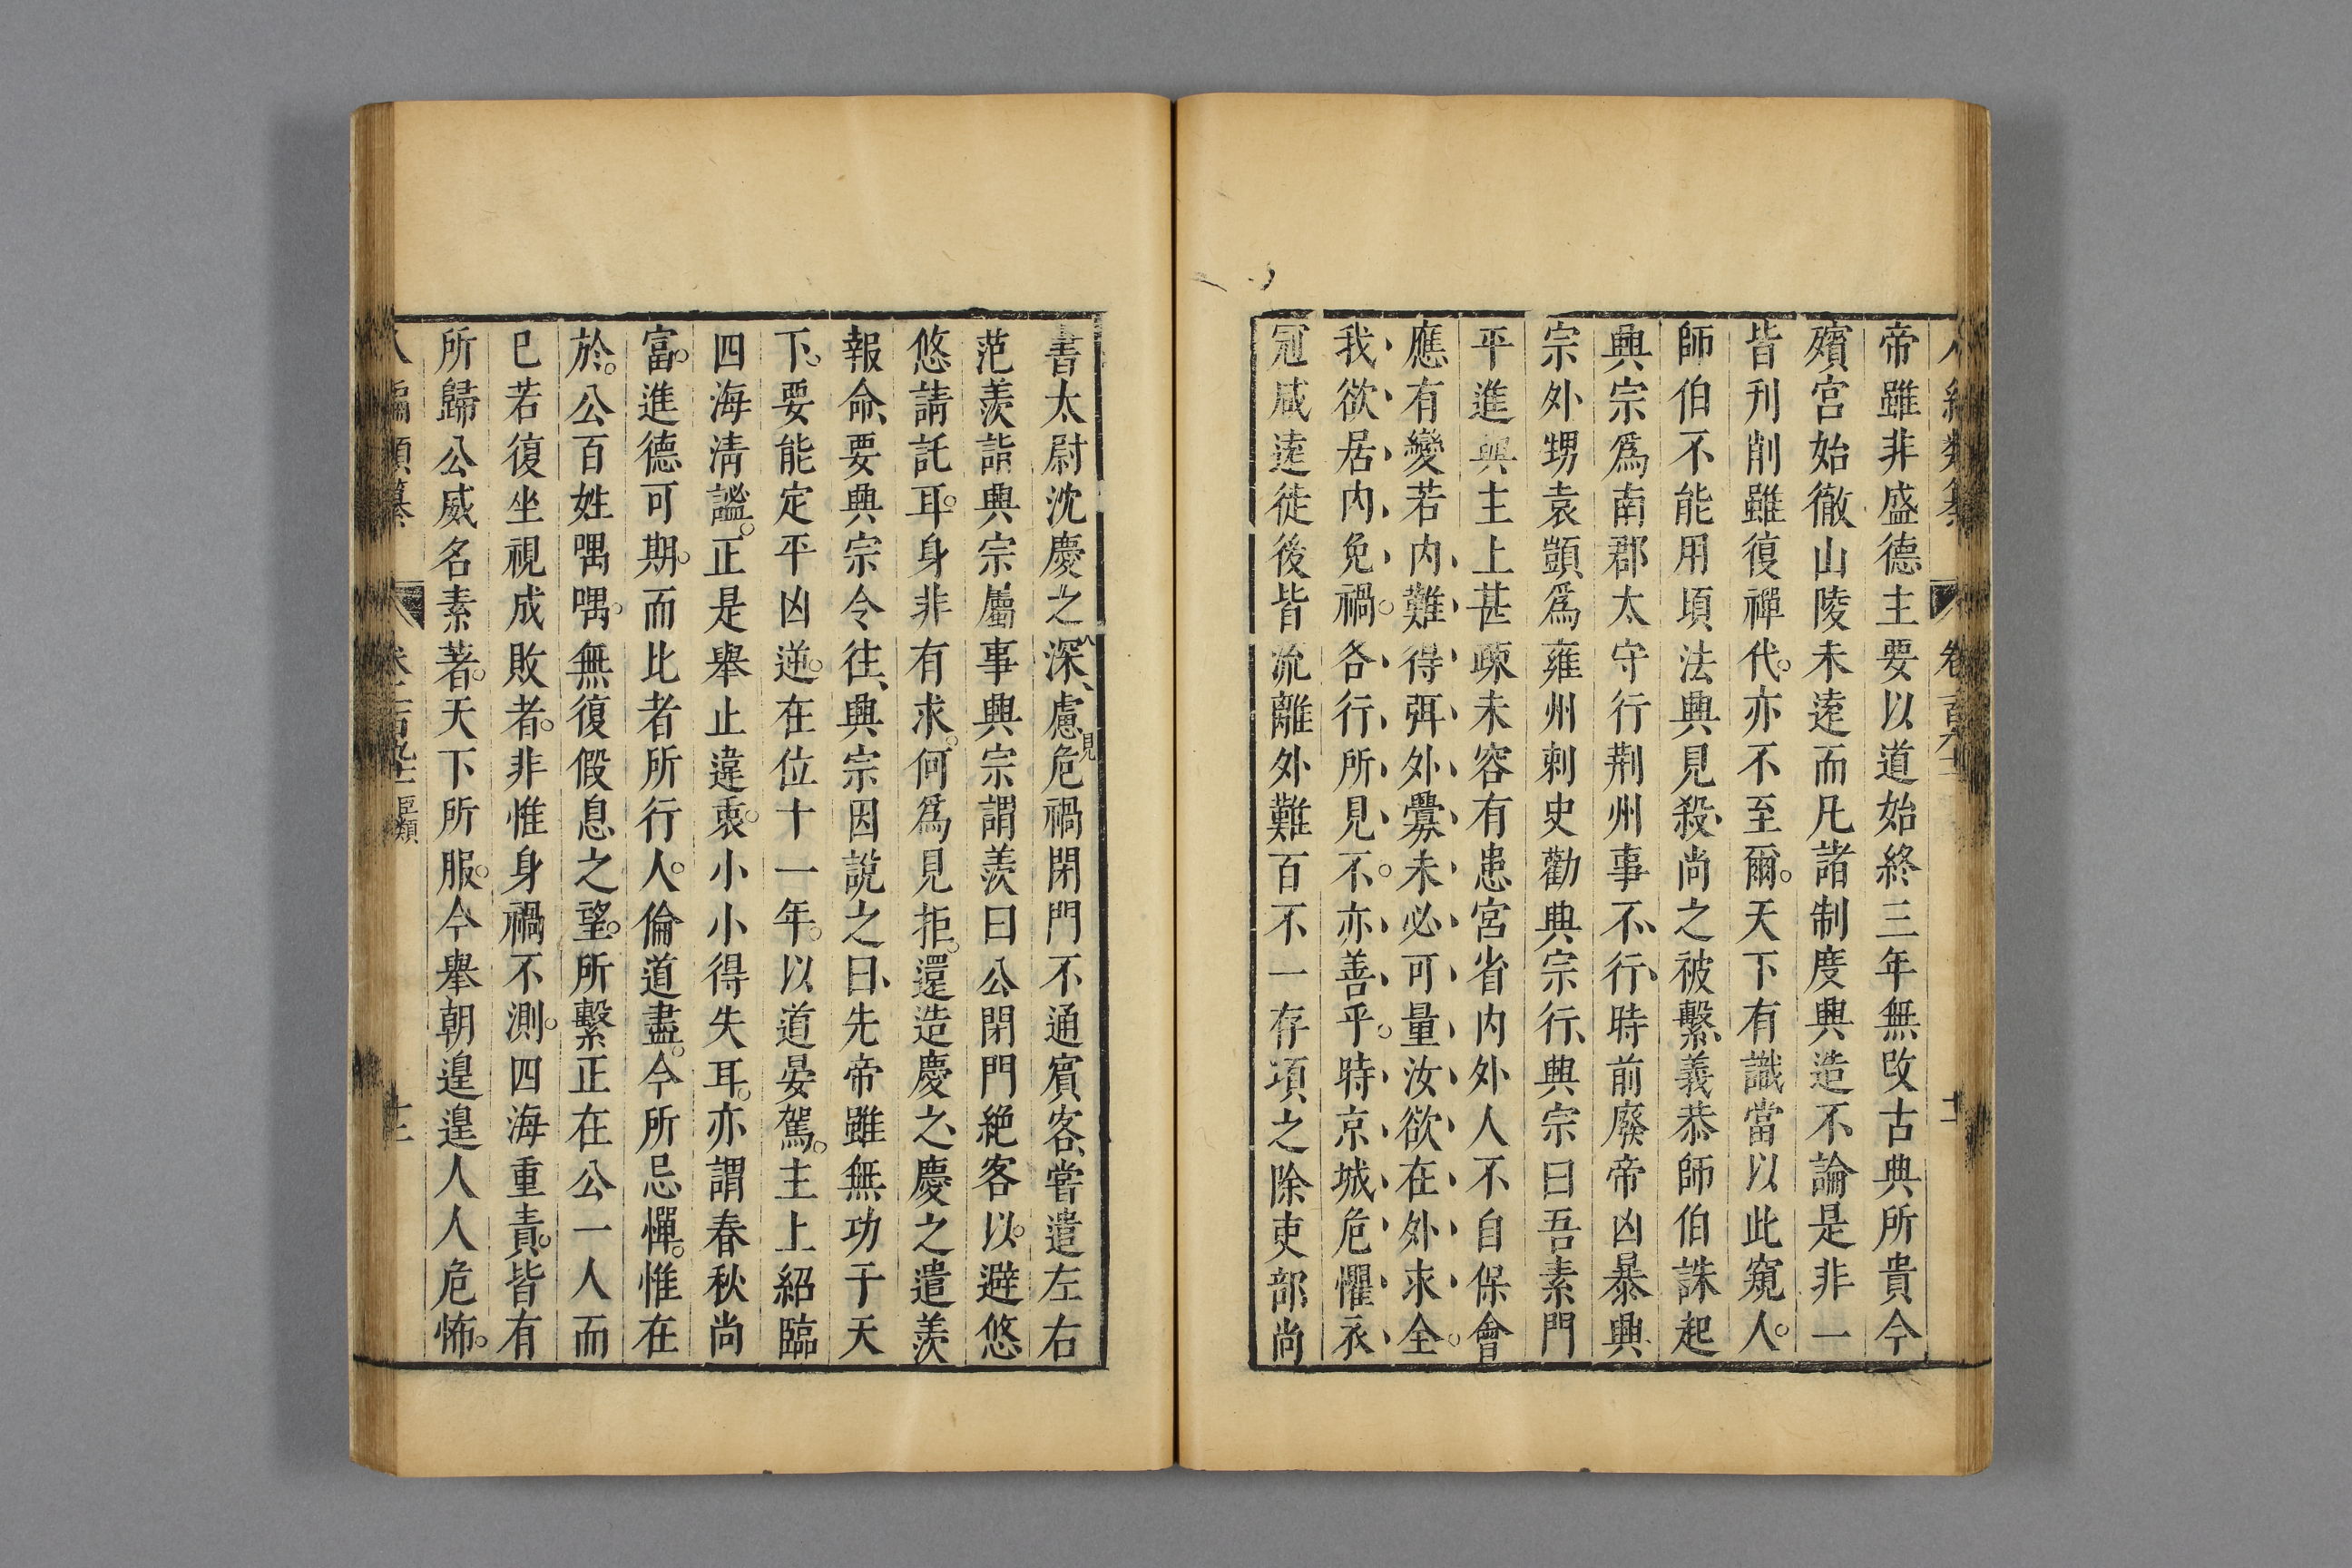 帝雖非盛德主要以道始終三年無改古典所貴今
殯宮始徹山陵未遠而凡諸制度興造不論是非一
皆刋削雖復禪代亦不至爾天下有識當以此窺人
師伯不能用頃法興見殺尚之被繫義恭師伯誅起
興宗爲南郡太守行荆州事不行時前廢帝凶暴興
宗外甥袁顗爲雍州刺史勸興宗行興宗曰吾素門
平進與主上甚疎未容有患宮省内外人不自保會
應有變若内難得弭外釁未必可量汝欲在外求全
我欲居内免禍各行所見不亦善乎時京城危懼衣
冠咸遠徙後皆流離外難百不一存項之除吏部尚
書太尉沈慶之深慮危禍閉門不通賓客嘗遣左右
見
范羨詣興宗屬事興宗謂羨曰公閉門絶客以避悠
悠請託耳身非有求何爲見拒還造慶之慶之遣羨
報命要興宗令往興宗因說之曰先帝雖無功于天
下要能定平凶逆在位十一年以道晏駕主上紹臨
四海清謐正是舉止違衷小小得失耳亦謂春秋尚
富進德可期而比者所行人倫道盡今所忌憚惟在
於公百姓喁喁無復假息之望所繫正在公一人而
已若復坐視成敗者非惟身禍不測四海重責皆有
所歸公威名素著天下所服今舉朝遑遑人人危怖